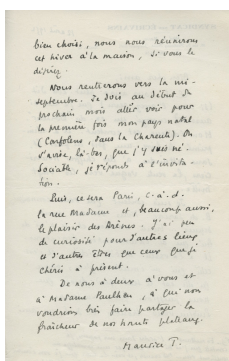 bien choisi, nous nous réunirons
cet hiver à la maison, si vous le
désirez.
Nous rentrerons vers la mi-
septembre. Je dois au début du
prochain mois aller voir pour
la première fois mon pays natal
(Confolens, dans la Charente). On
s'avise, là-bas, que j'y suis né.
Sociable, je réponds à l'invita-
tion.
Puis, ce sera Paris, c.-à-d.
la rue Madame et, beaucoup aussi,
le plaisir des Arènes. J'ai peu
de curiosité pour d'autres lieux
et d'autres êtres que ceux que je
chéris à présent.
De nous à deux à vous et
à Madame Paulhan, à qui nous
voudrions bien faire partager la
fraîcheur de nos hauts plateaux.
Maurice T.